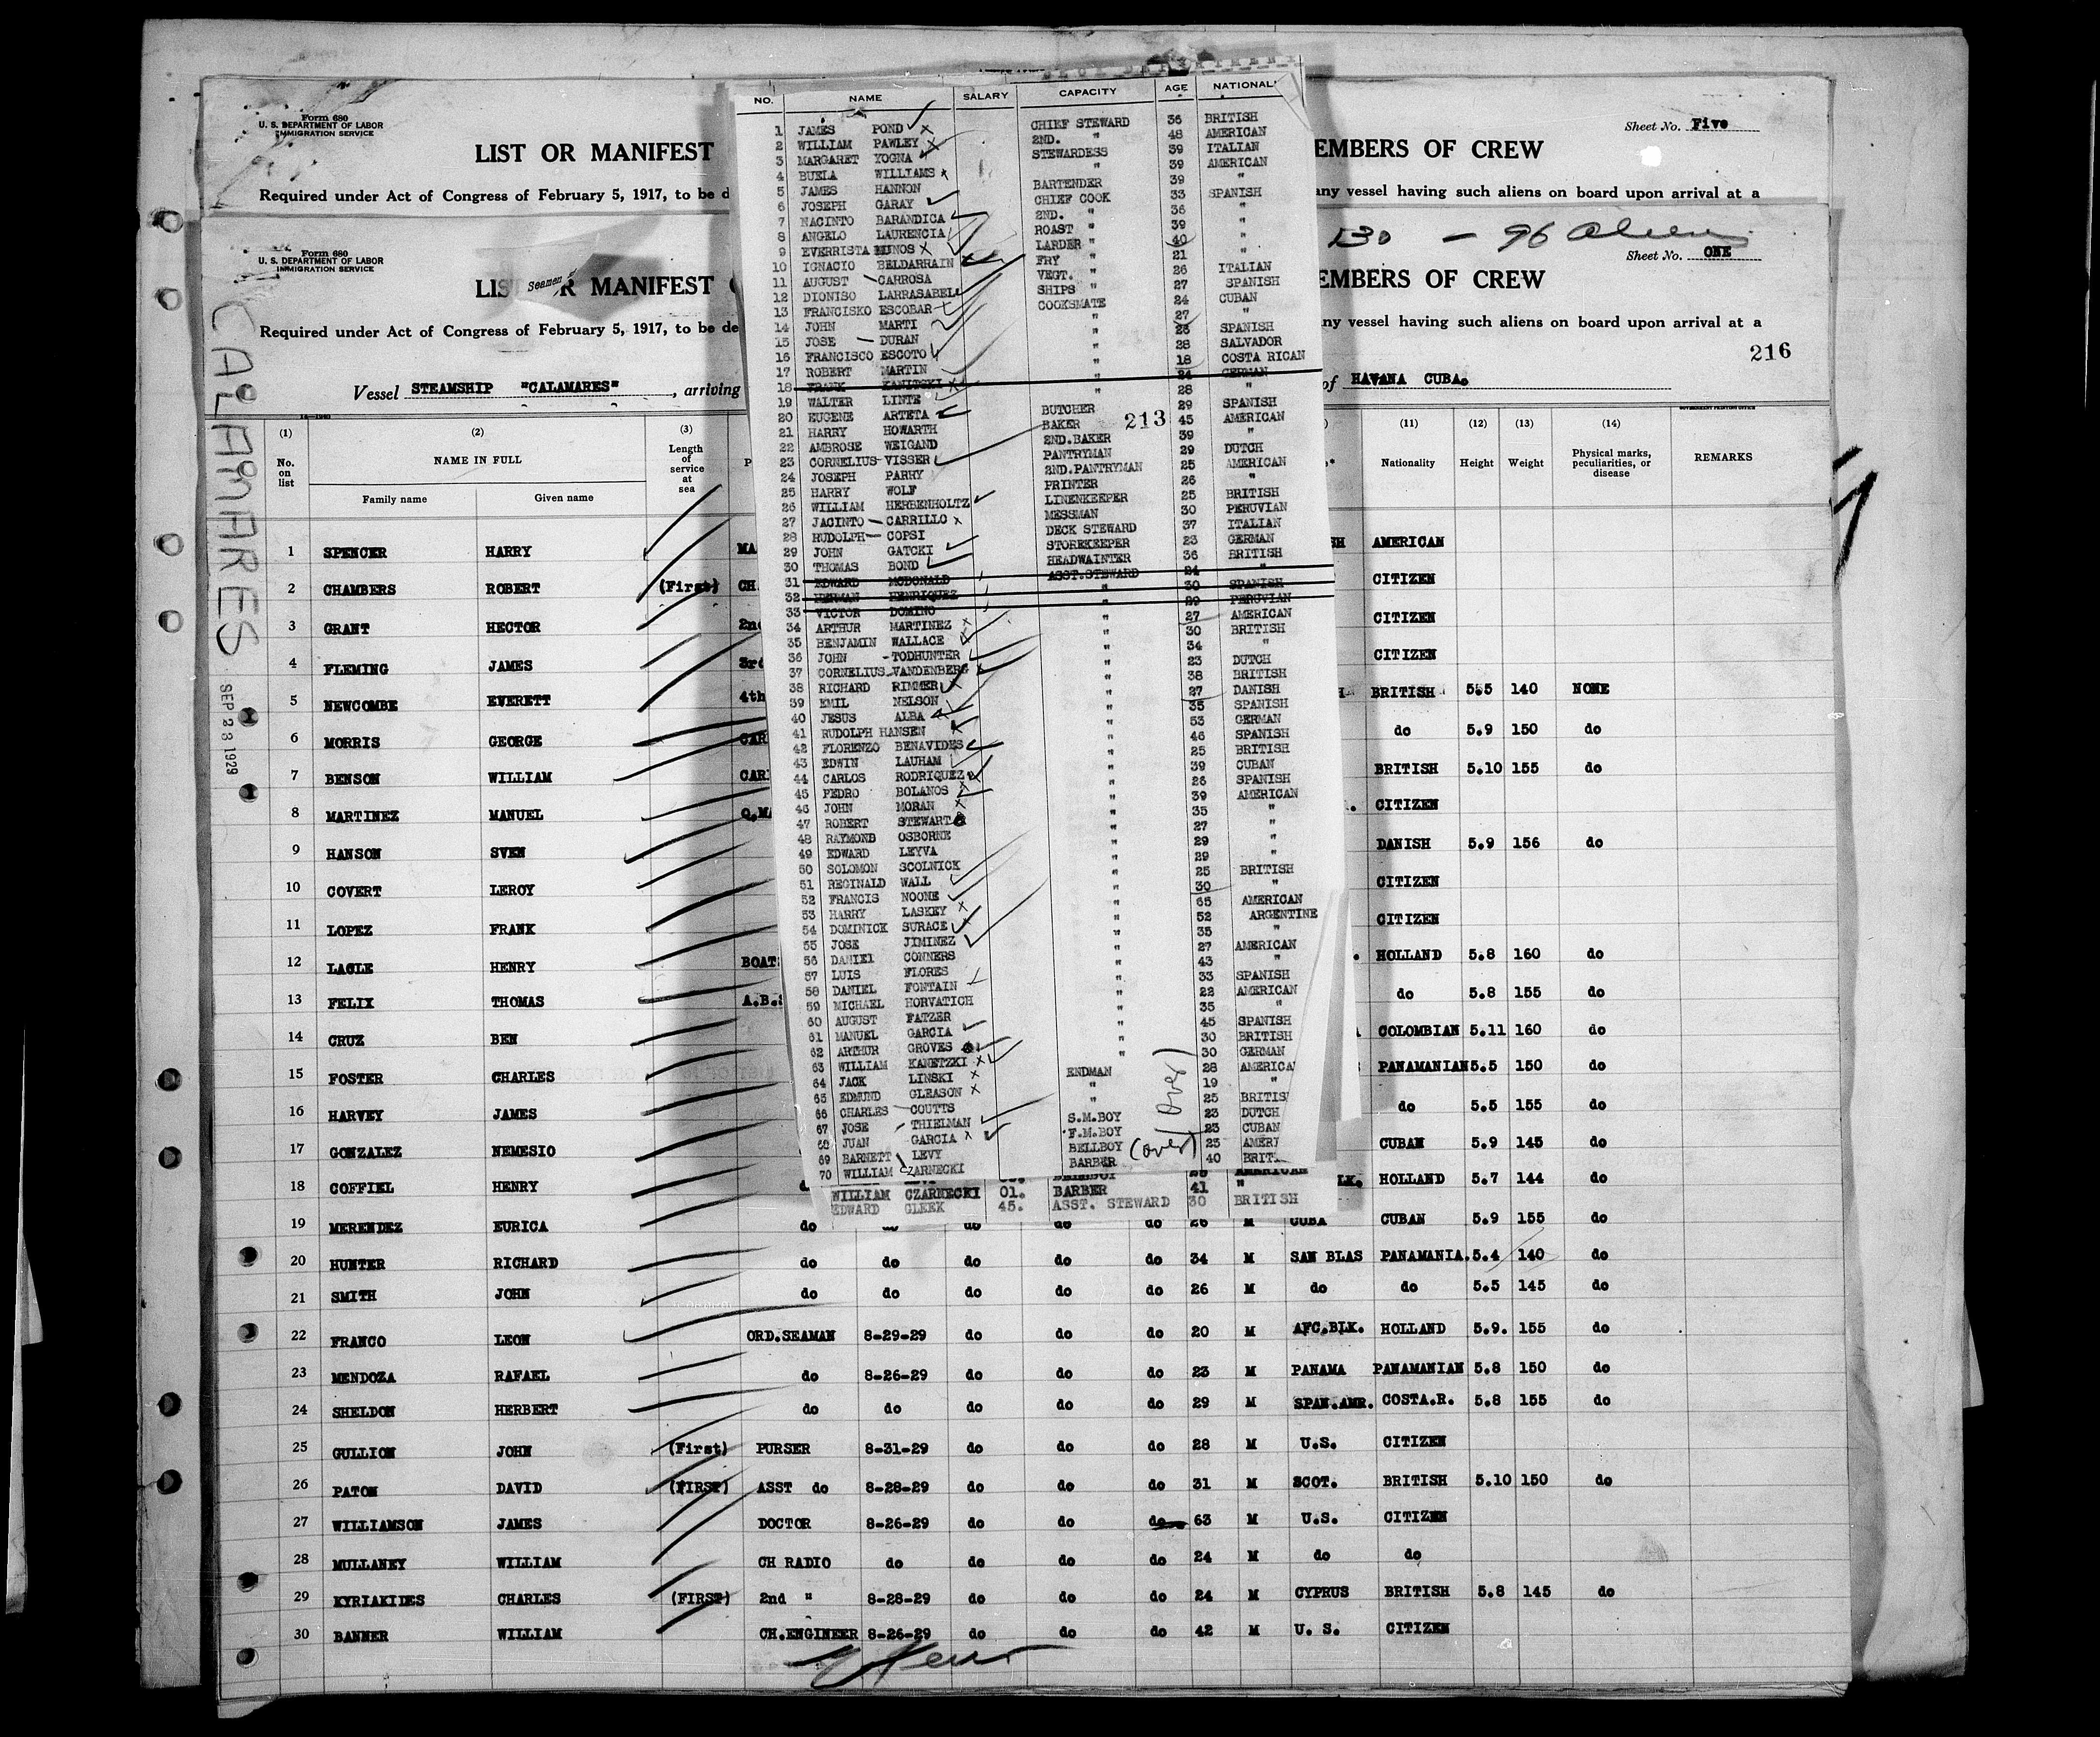 Form 680
U. S. DEPARTMENT OF LABOR
IMMIGRATION SERVICE
Sheet No. Five
LIST OR MANIFEST
EMBERS OF CREW
Required under Act of Congress of February 5, 1917, to be d
any vessel having such aliens on board upon arrival at a
130 — 96 Aliens
Form 680
U. S. DEPARTMENT OF LABOR
IMMIGRATION SERVICE
Sheet No. ONE
Seamen
EMBERS OF CREW
Required under Act of Congress of February 5, 1917, to be de
any vessel having such aliens on board upon arrival at a
216
Vessel STEAMSHIP "CALAMARES", arriving
of HAVANA CUBA.
CALAMARES
SEP 23 1929
NO. NAME SALARY CAPACITY AGE NATIONAL
1 JAMES POND CHIEF STEWARD 36 BRITISH
2 WILLIAM PAWLEY 2ND. " 48 AMERICAN
3 MARGARET YOGNA STEWARDESS 39 ITALIAN
4 BUELA WILLIAMS " 39 AMERICAN
5 JAMES HANNON BARTENDER 39 "
6 JOSEPH GARAY CHIEF COOK 33 SPANISH
7 NACINTO BARANDICA 2ND. " 36 "
8 ANGELO LAURENCIA ROAST " 39 "
9 EVERRISTA MUNOS LARDER " 40 "
10 IGNACIO BELDARRAIN FRY " 21 "
11 AUGUST CARROSA VEGT. " 26 ITALIAN
12 DIONISO LARRASABEL SHIPS " 27 SPANISH
13 FRANCISKO ESCOBAR COOKSMATE 24 CUBAN
14 JOHN MARTI " 27 "
15 JOSE DURAN " SPANISH
16 FRANCISCO ESCOTO " 28 SALVADOR
17 ROBERT MARTIN " 18 COSTA RICAN
18 FRANK KANITSKI " 24 GERMAN
19 WALTER LINTE " 28 "
20 EUGENE ARTETA BUTCHER 29 SPANISH
21 HARRY HOWARTH BAKER 45 AMERICAN
213
22 AMBROSE WEIGAND 2ND.BAKER 39 "
23 CORNELIUS VISSER PANTRYMAN 29 DUTCH
24 JOSEPH PARRY 2ND.PANTRYMAN 25 AMERICAN
25 HARRY WOLF PRINTER 26 "
26 WILLIAM HERBENHOLTZ LINENKEEPER 25 BRITISH
27 JACINTO CARRILLO MESSMAN 30 PERUVIAN
28 RUDOLPH COPSI DECK STEWARD 37 ITALIAN
29 JOHN GATCKI STOREKEEPER 23 GERMAN
30 THOMAS BOND HEADWAINTER 36 BRITISH
31 EDWARD MCDONALD ASST.STEWARD 24 "
32 HERMAN HENRIQUEZ " 30 SPANISH
33 VICTOR DOMINO " 29 PERUVIAN
34 ARTHUR MARTINEZ " 27 AMERICAN
35 BENJAMIN WALLACE " 30 BRITISH
36 JOHN TODHUNTER " 34 "
37 CORNELIUS VANDENBERG " 23 DUTCH
38 RICHARD RIMMER " 38 BRITISH
39 EMIL NELSON " 27 DANISH
40 JESUS ALBA " 35 SPANISH
41 RUDOLPH HANSEN " 53 GERMAN
42 FLORENZO BENAVIDES " 46 SPANISH
43 EDWIN LAUHAM " 25 BRITISH
44 CARLOS RODRIQUEZ " 39 CUBAN
45 PEDRO BOLANOS " 26 SPANISH
46 JOHN MORAN " 39 AMERICAN
47 ROBERT STEWART " 35 "
48 RAYMOND OSBORNE " 27 "
49 EDWARD LEYVA " 29 "
50 SOLOMON SCOLNICK " 29 "
51 REGINALD WALL " 25 BRITISH
52 FRANCIS NOONE " 30 "
53 HARRY LASKEY " 65 AMERICAN
54 DOMINICK SURACE " 52 ARGENTINE
55 JOSE JIMINEZ " 35 "
56 DANIEL CONNERS " 27 AMERICAN
57 LUIS FLORES " 43 "
58 DANIEL FONTAIN " 33 SPANISH
59 MICHAEL HORVATICH " 22 AMERICAN
60 AUGUST FATZER " 35 "
61 MANUEL GARCIA " 45 SPANISH
62 ARTHUR GROVES " 30 BRITISH
63 WILLIAM KANETZKI " 30 GERMAN
64 JACK LINSKI ENDMAN 28 AMERICA
65 EDMUND GLEASON " 19 "
66 CHARLES COUTTS " 25 BRITIS
67 JOSE THIELMAN S.M.BOY 23 DUTCH
68 JUAN GARCIA F.M.BOY 23 CUBAN
69 BARNETT LEVY BELLBOY 25 AMERI
70 WILLIAM CZARNECKI BARBER 40 BRIT
(over)
(over)
WILLIAM CZARNECKI 01. BARBER 41 "
EDWARD CLEEK 45. ASST. STEWARD 30 BRITISH
(1) (2) (3) (11) (12) (13) (14)
No. on list NAME IN FULL Length of service at sea Nationality Height Weight Physical marks, peculiarities, or disease REMARKS
Family name Given name
1 SPENCER HARRY MA AMERICAN
2 CHAMBERS ROBERT (First) CH CITIZEN
3 GRANT HECTOR 2n CITIZEN
4 FLEMING JAMES 3r CITIZEN
5 NEWCOMBE EVERETT 4th BRITISH 5.5 140 NONE
6 MORRIS GEORGE CAR do 5.9 150 do
7 BENSON WILLIAM CAR BRITISH 5.10 155 do
8 MARTINEZ MANUEL Q.M CITIZEN
9 HANSON SVEN DANISH 5.9 156 do
10 COVERT LEROY CITIZEN
11 LOPEZ FRANK CITIZEN
12 LAGLE HENRY BOAT HOLLAND 5.8 160 do
13 FELIX THOMAS A.B.S do 5.8 155 do
14 CRUZ BEN COLOMBIAN 5.11 160 do
15 FOSTER CHARLES PANAMANIAN 5.5 150 do
16 HARVEY JAMES do 5.5 155 do
17 GONZALEZ NEMESIO CUBAN 5.9 145 do
18 COFFIEL HENRY LK. HOLLAND 5.7 144 do
19 MERENDEZ EURICA do do do do do 26 M CUBA CUBAN 5.9 155 do
20 HUNTER RICHARD do do do do do 34 M SAN BLAS PANAMANIA. 5.4 140 do
21 SMITH JOHN do do do do do 26 M do do 5.5 145 do
22 FRANCO LEON ORD.SEAMAN 8-29-29 do do do 20 M AFC.BLK. HOLLAND 5.9. 155 do
23 MENDOZA RAFAEL do 8-26-29 do do do 23 M PANAMA PANAMANIAN 5.8 150 do
24 SHELDON HERBERT do do do do do 29 M SPAN.AMR. COSTA.R. 5.8 155 do
25 GULLION JOHN (First) PURSER 8-31-29 do do do 28 M U.S. CITIZEN
26 PATON DAVID (FIRST) ASST do 8-28-29 do do do 31 M SCOT. BRITISH 5.10 150 do
27 WILLIAMSON JAMES DOCTOR 8-26-29 do do do 63 M U.S. CITIZEN
28 MULLANEY WILLIAM CH RADIO do do do do 24 M do do
29 KYRIAKIDES CHARLES (FIRST) 2nd " 8-28-29 do do do 24 M CYPRUS BRITISH 5.8 145 do
30 BANNER WILLIAM CH.ENGINEER 8-26-29 do do do 42 M U. S. CITIZEN